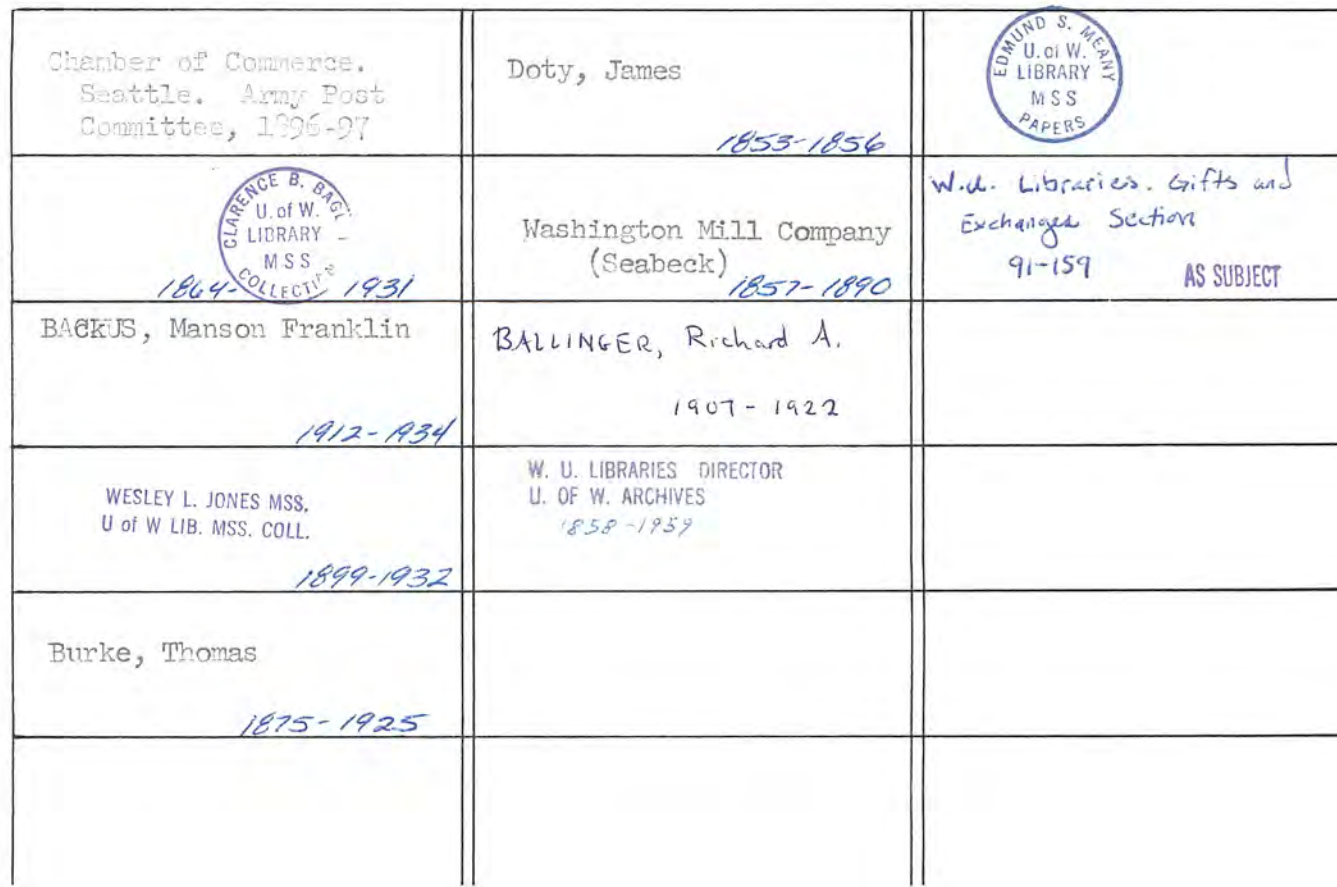 Chamber of Commerce.
Seattle. Army Post
Committee, 1896-97
Doty, James
1853-1856
EDMUND S. MEANY
U. of W.
LIBRARY
MSS
PAPERS
CLARENCE B. BAGL
U. of W.
LIBRARY
MSS
COLLECTI
1864- 1931
Washington Mill Company
(Seabeck)
1857-1890
W.U. Libraries. Gifts and
Exchanges Section
91-159
AS SUBJECT
BACKUS, Manson Franklin
1912-1934
BALLINGER, Richard A.
1907-1922
WESLEY L. JONES MSS.
U of W LIB. MSS. COLL.
1899-1932
W. U. LIBRARIES DIRECTOR
U. OF W. ARCHIVES
1858-1959
Burke, Thomas
1875-1925